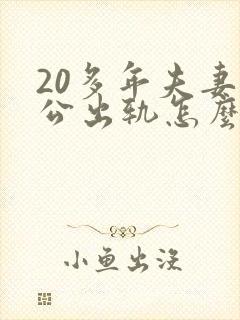 20多年夫妻
公出轨怎麽
小鱼出没